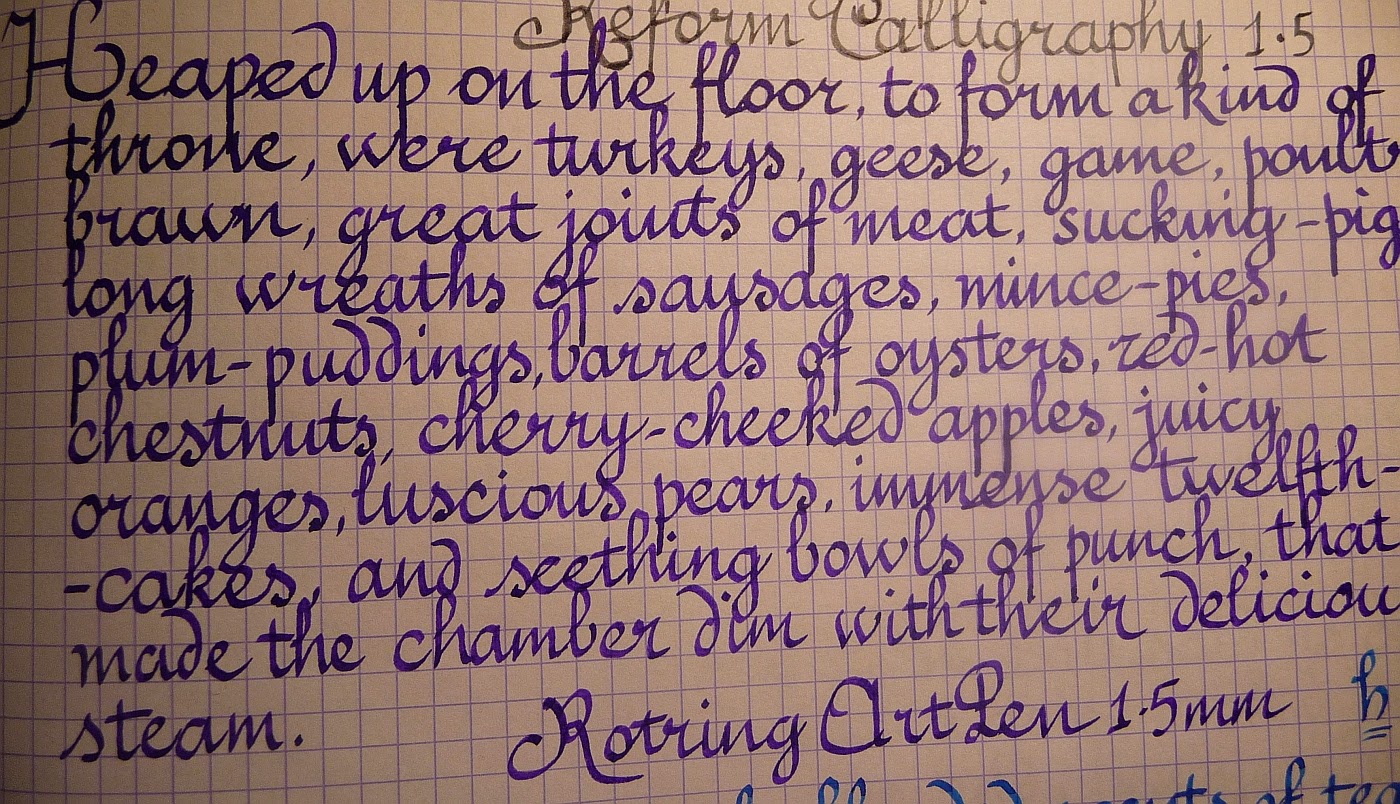 Reform Calligraphy 1.5
Heaped up on the floor, to form a kind of
throne, were turkeys, geese, game, poult
brawn, great joints of meat, sucking-pig
long wreaths of sausages, mince-pies,
plum-puddings, barrels of oysters, red-hot
chestnuts, cherry-cheeked apples, juicy
oranges, luscious pears, immense twelfth-
-cakes, and seething bowls of punch, that
made the chamber dim with their deliciou
steam.
Rotring ArtPen 1.5mm
h